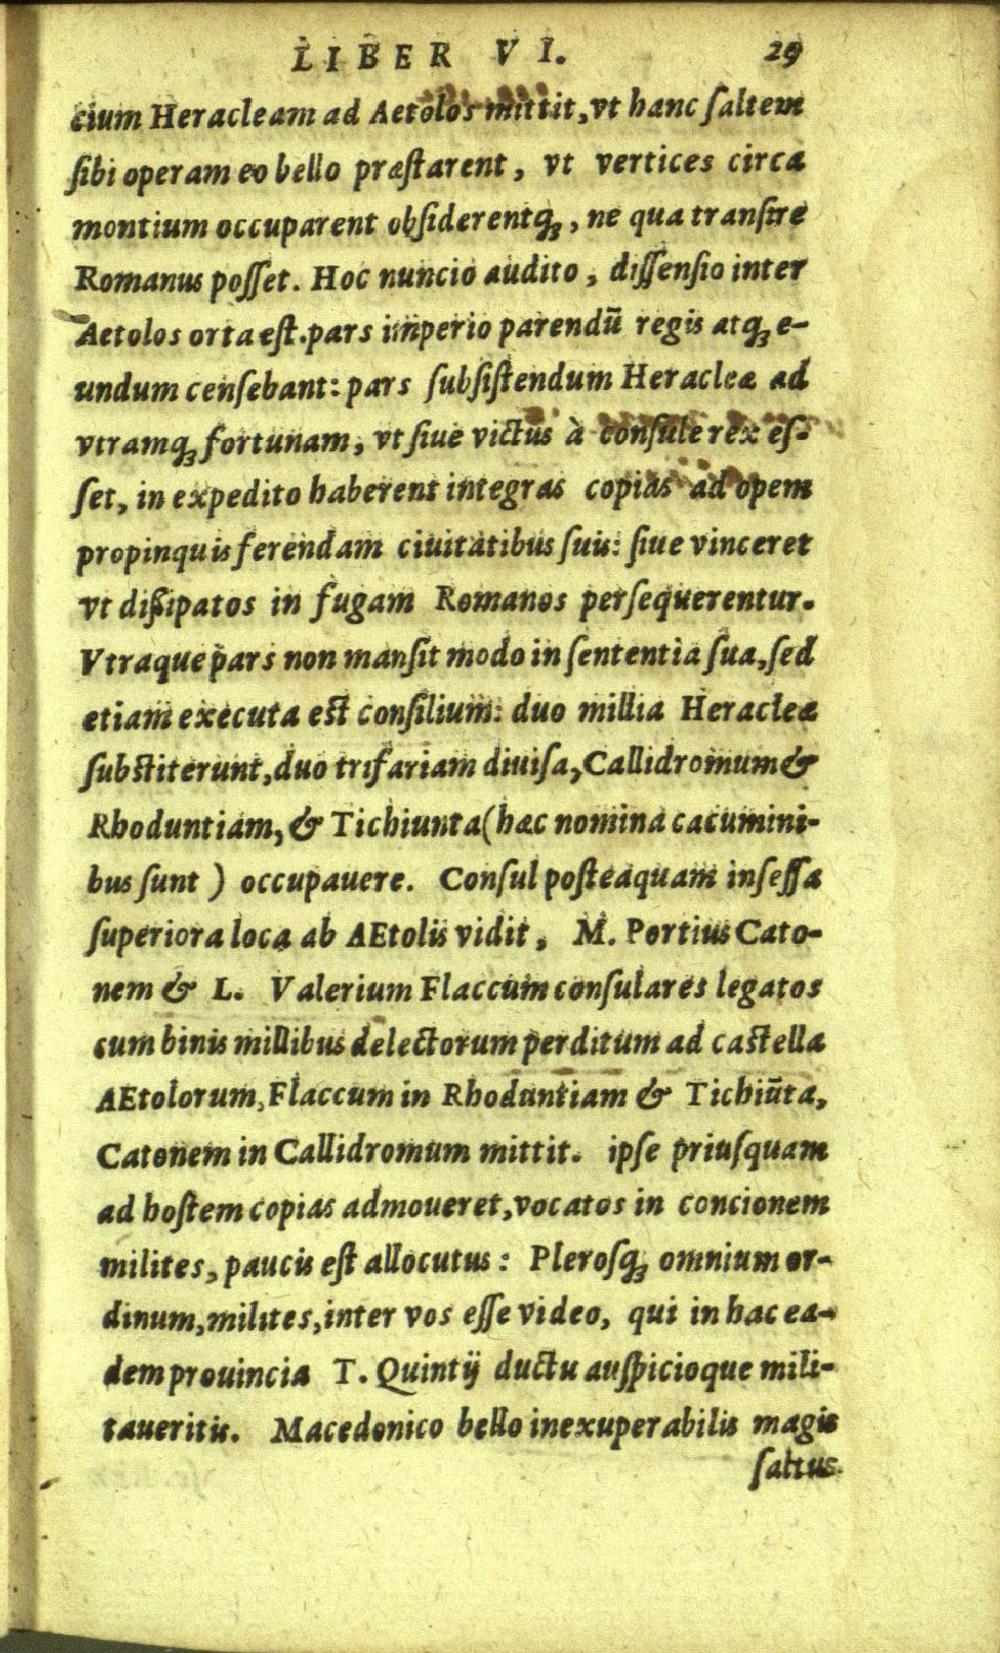 LIBER VI. 29
cium Heracleam ad Aetolos mittit, vt hanc ſaltem
ſibi operam eo bello præſtarent, vt vertices circa
montium occuparent obſiderentq́ꝫ, ne qua tranſire
Romanus poſſet. Hoc nuncio audito, diſſenſio inter
Aetolos orta eſt. pars imperio parendū regis atqꝫ e-
undum cenſebant: pars ſubſiſtendum Heracleæ ad
vtramqꝫ fortunam, vt ſiue victus à conſule rex eſ-
ſet, in expedito haberent integras copias ad opem
propinquis ferendam ciuitatibus ſuis: ſiue vinceret
vt diſsipatos in fugam Romanos perſequerentur.
Vtraque pars non manſit modo in ſententia ſua, ſed
etiam executa eſt conſilium: duo millia Heracleæ
ſubſtiterunt, duo trifariam diuiſa, Callidromum &
Rhoduntiam, & Tichiunta (hæc nomina cacumini-
bus ſunt) occupauere. Conſul poſteaquam inſeſſa
ſuperiora loca ab AEtolis vidit, M. Portius Cato-
nem & L. Valerium Flaccum conſulares legatos
cum binis millibus delectorum perditum ad caſtella
AEtolorum, Flaccum in Rhoduntiam & Tichiūta,
Catonem in Callidromum mittit. ipſe priuſquam
ad hoſtem copias admoueret, vocatos in concionem
milites, paucis eſt allocutus: Pleroſqꝫ omnium or-
dinum, milites, inter vos eſſe video, qui in hac ea-
dem prouincia T. Quintij ductu auſpicioque mili-
taueritis. Macedonico bello inexuperabilis magis
ſaltus